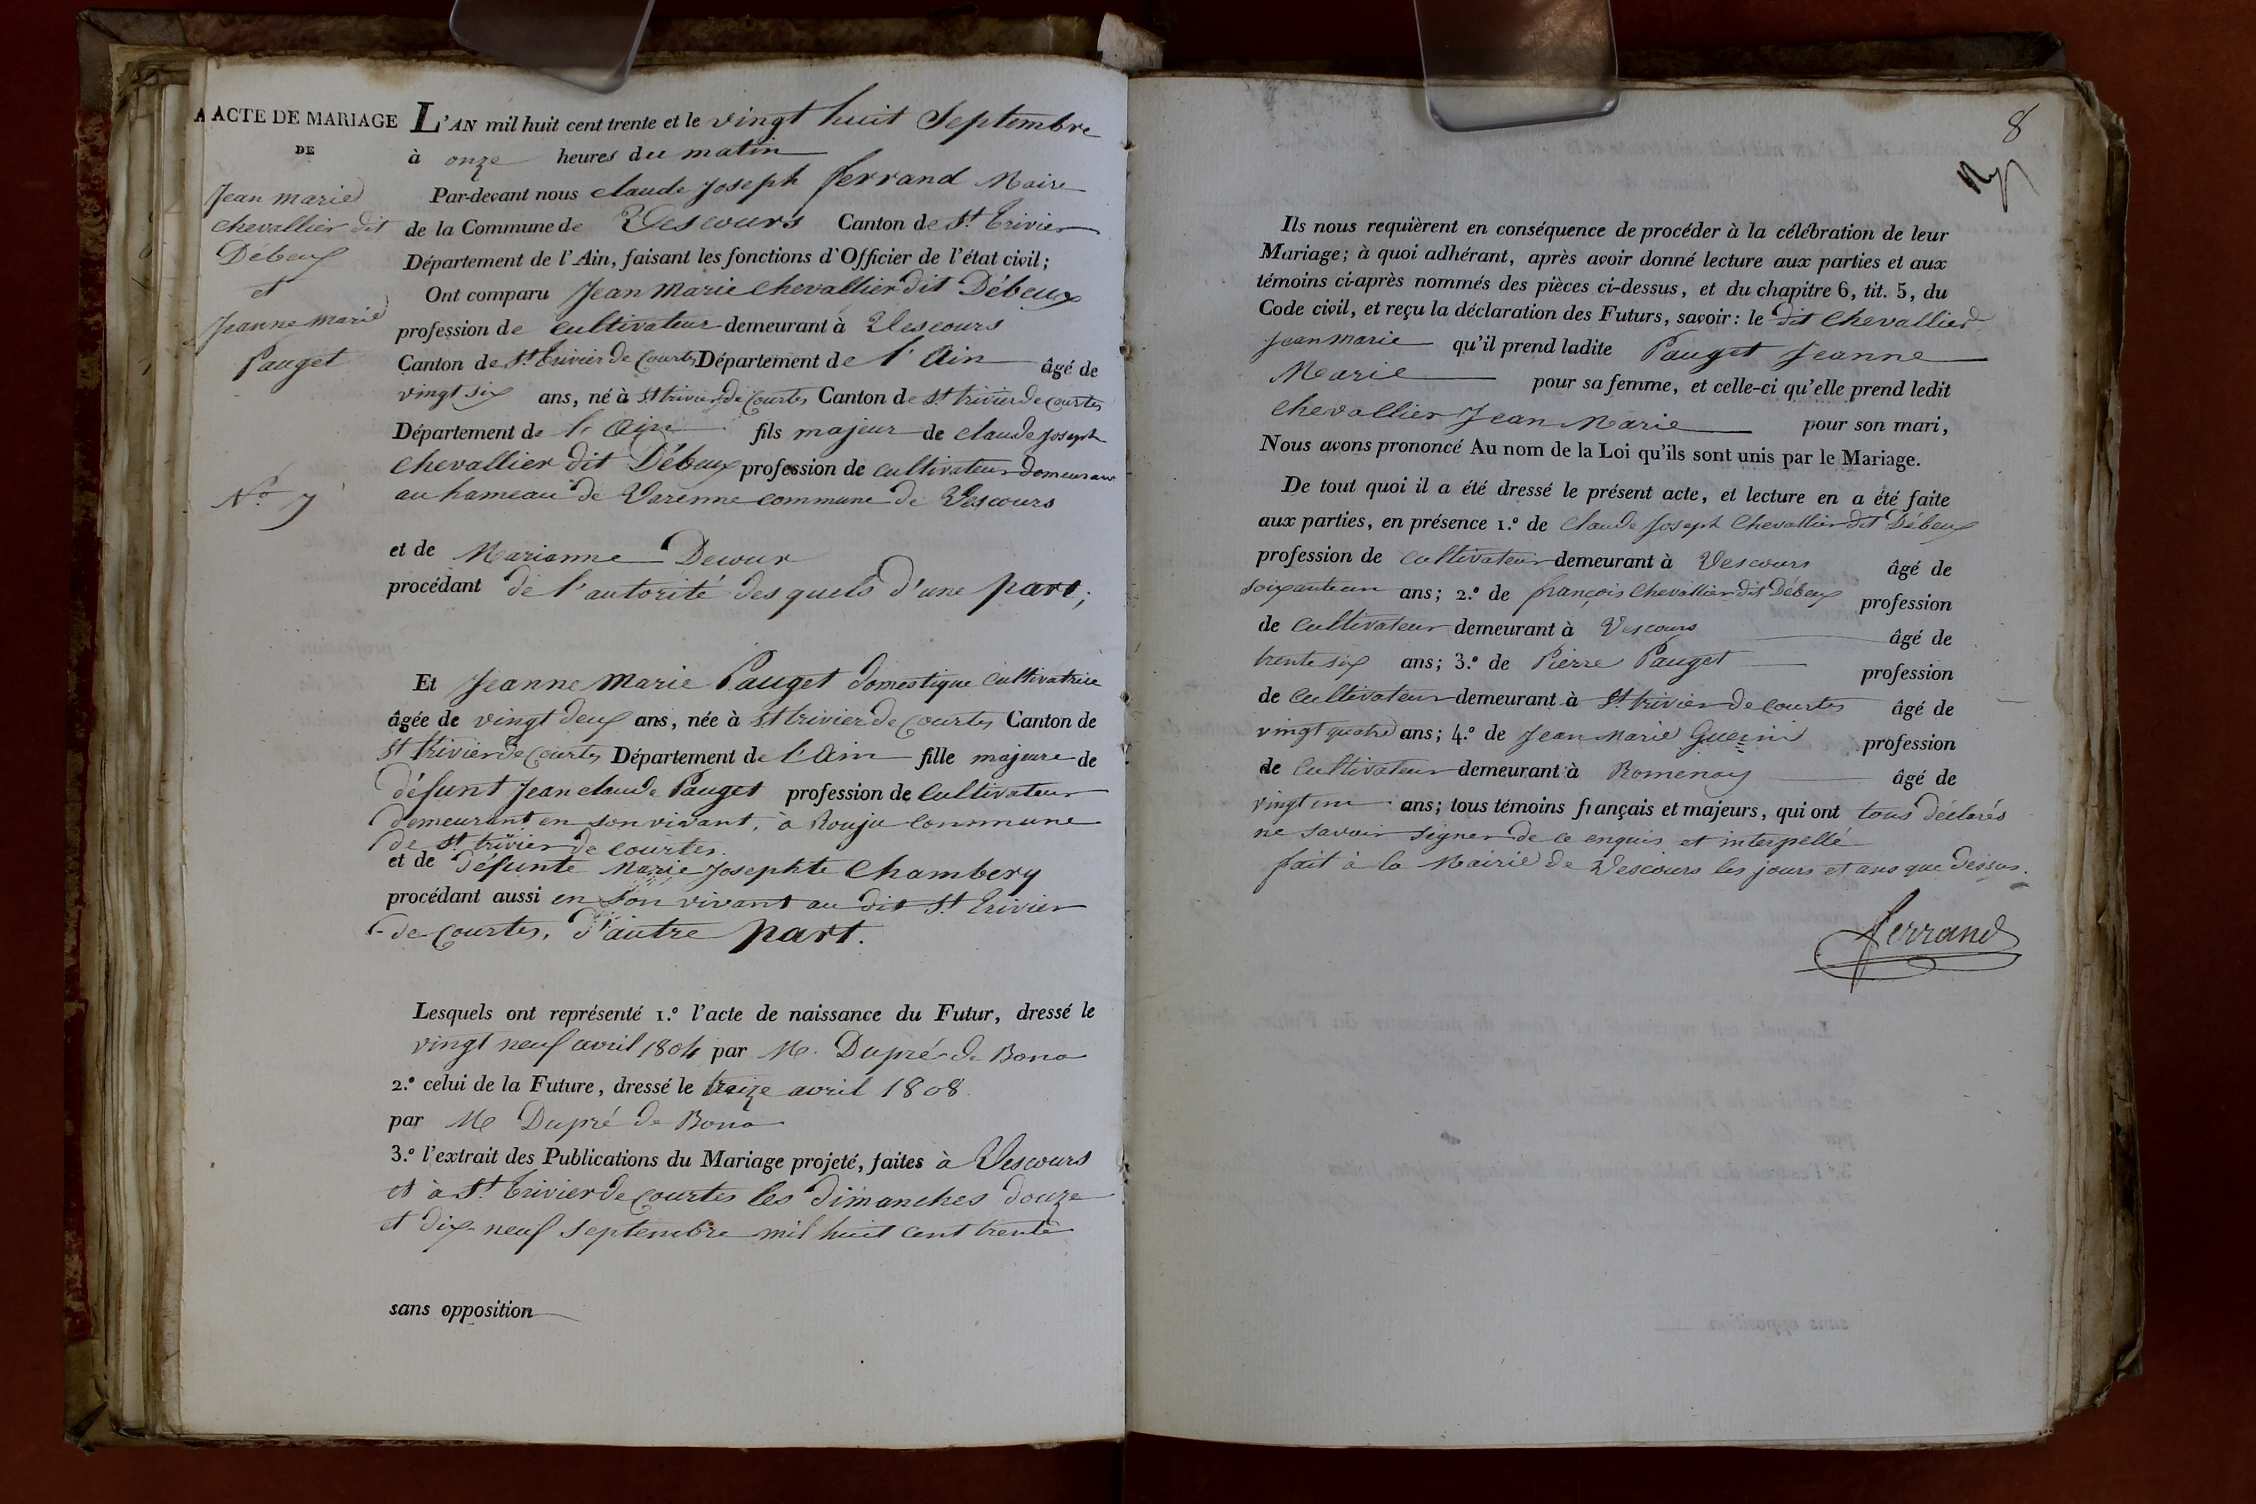 ACTE DE MARIAGE
DE
Jean marie
chevallier dit
Débeux
et
Jeanne marie
Pauget
N.o 7
L'AN mil huit cent trente et le vingt huit Septembre
à onze heures du matin
Par-devant nous claude Joseph ferrand Maire
de la Commune de Vescours Canton de St. trivier
Département de l'Ain, faisant les fonctions d'Officier de l'état civil;
Ont comparu Jean Marie chevallier dit Débeux
profession de cultivateur demeurant à Vescours
Canton de St. trivier de Courtes Département de l'Ain âgé de
vingt six ans, né à St trivier de Courtes Canton de St. trivier de courtes
Département de l'Ain fils majeur de claude Joseph
chevallier dit Débeux profession de cultivateur demeurant
au hameau de Varenne commune de Vescours
et de Marianne Decour
procédant de l'autorité des quels d'une part;
Et Jeanne Marie Pauget domestique Cultivatrice
âgée de vingt deux ans, née à St trivier de Courtes Canton de
St trivier de Courtes Département de l'Ain fille majeure de
défunt Jean claude Pauget profession de Cultivateur
demeurant en son vivant, à Rouju commune
de St. trivier de courtes.
et de défunte Marie Josephte Chambery
procédant aussi en son vivant au dit St. trivier
de Courtes, d'autre part.
Lesquels ont représenté 1.o l'acte de naissance du Futur, dressé le
vingt neuf avril 1804 par M. Dupré de Bona
2.o celui de la Future, dressé le treize avril 1808
par M Dupré de Bona
3.o l'extrait des Publications du Mariage projeté, faites à Vescours
et à St. trivier de Courtes les dimanches douze
et dix neuf septembre mil huit cent trente
sans opposition
8
Ils nous requièrent en conséquence de procéder à la célébration de leur
Mariage; à quoi adhérant, après avoir donné lecture aux parties et aux
témoins ci-après nommés des pièces ci-dessus, et du chapitre 6, tit. 5, du
Code civil, et reçu la déclaration des Futurs, savoir: le dit Chevallier
Jean marie qu'il prend ladite Pauget Jeanne
Marie pour sa femme, et celle-ci qu'elle prend ledit
chevallier Jean Marie pour son mari,
Nous avons prononcé Au nom de la Loi qu'ils sont unis par le Mariage.
De tout quoi il a été dressé le présent acte, et lecture en a été faite
aux parties, en présence 1.o de claude Joseph Chevallier dit Débeux
profession de cultivateur demeurant à Vescours âgé de
soixante un ans; 2.o de françois Chevallier dit Débeux profession
de cultivateur demeurant à Vescours âgé de
trente six ans; 3.o de Pierre Pauget profession
de cultivateur demeurant à St. trivier de courtes âgé de
vingt quatre ans; 4.o de Jean Marie Guerin profession
de Cultivateur demeurant à Romenay âgé de
vingt un ans; tous témoins français et majeurs, qui ont tous déclarés
ne savoir signer de ce enquis et interpellé
fait à la Mairie de Vescours les jours et ans que dessus.
ferrand